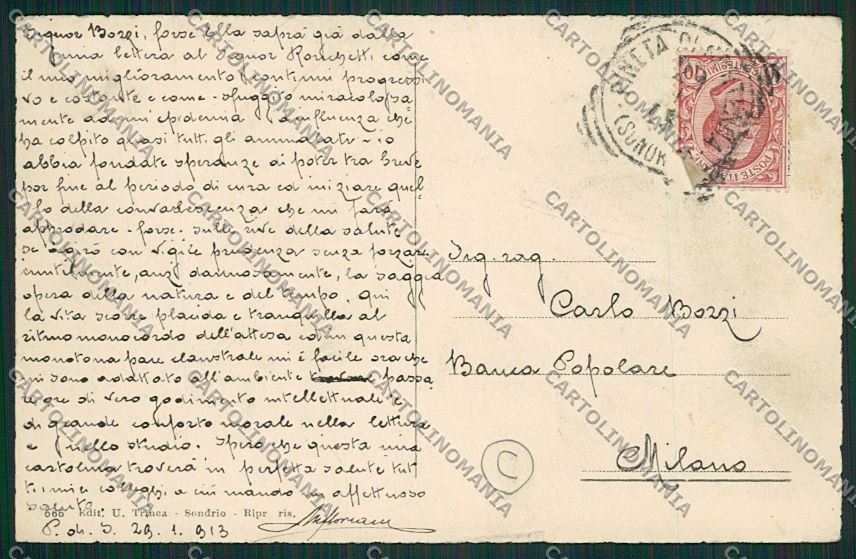 Signor Bozzi, forse Ella saprà già dalla
mia lettera al Signor Ronchetti, come
il mio miglioramento continui progressi
vo e costante e come - sfuggito miracolosa-
mente ad una epidemia d'influenza che
ha colpito quasi tutti gli ammalati - io
abbia fondate speranze di poter tra breve
por fine al periodo di cura ed iniziare quel
lo della convalescenza che mi farà
approdare - forse - sulle rive della salute
se agirò con vigile prudenza senza forzare
inutilmente, anzi dannosamente, la saggia
opera della natura e del tempo. Qui
la vita scorre placida e tranquilla al
ritmo monocordo dell'attesa ed in questa
monotona pace claustrale mi è facile ora che
mi sono adattato all'ambiente passa
re ore di vero godimento intellettuale e
di grande conforto morale nella lettura
e nello studio. Spero che questa mia
cartolina troverà in perfetta salute tut
ti i miei colleghi, a cui mando un affettuoso
saluto.
666 Edit. U. Trinca - Sondrio - Ripr. ris.
P. di S. 29. 1. 913
PINETA DI
(SONDR
POSTE ITALIANE
CENTESIMI 10
Sig. rag.
Carlo Bozzi
Banca Popolare
Milano
C
CARTOLINOMANIA